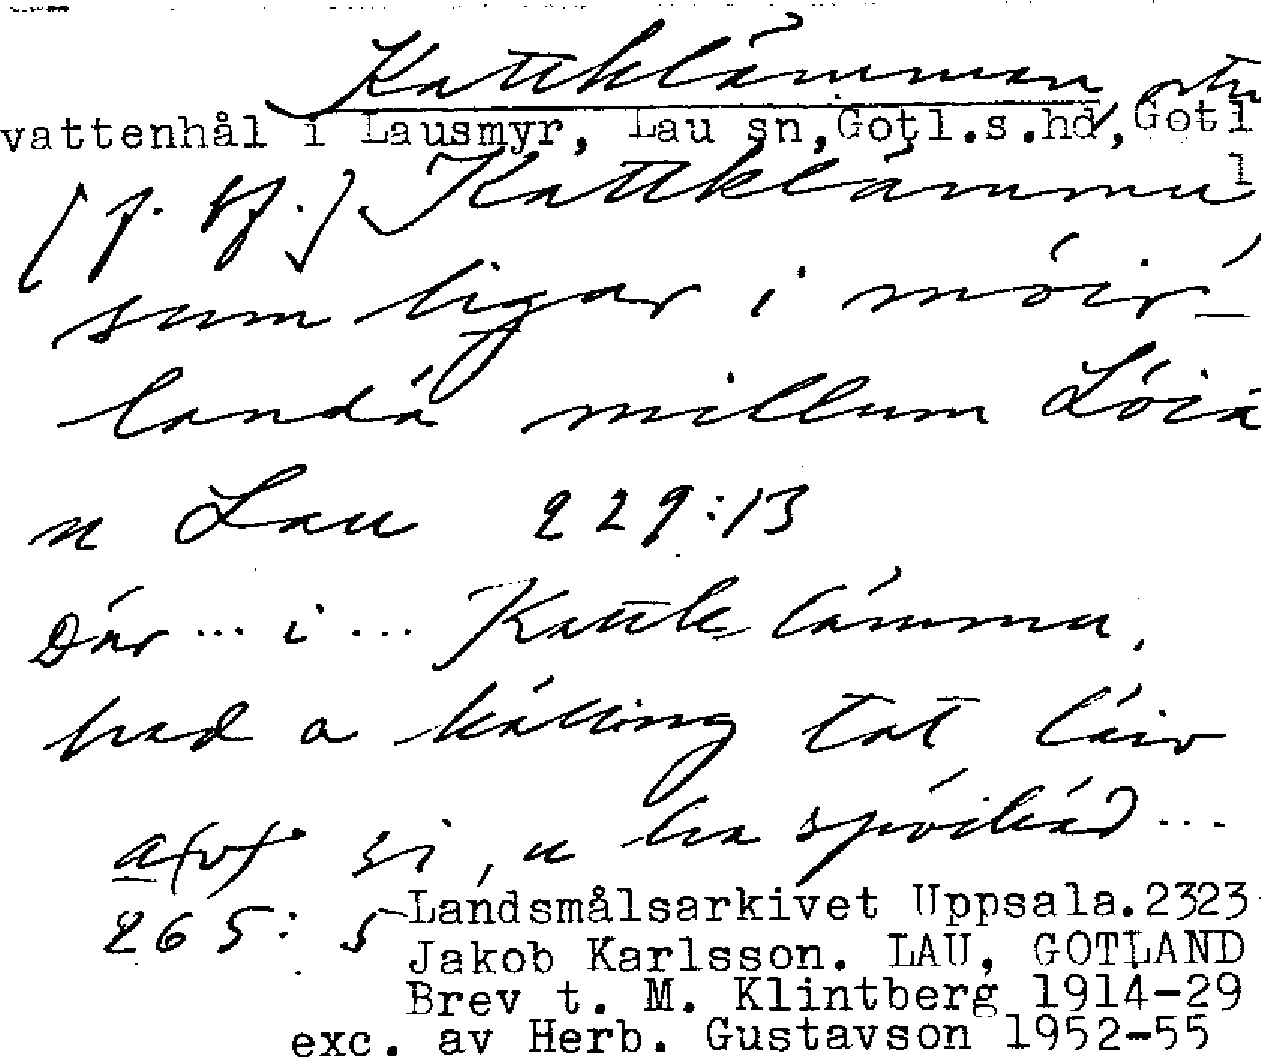 Kattklämman
vattenhål i Lausmyr, Lau sn,Gotl.s.hd,Gotl
l
Kattklámmu
sum ligar i móir-
landá millum Lóiá
u Lau 229:13
Dár ... i ... Kattklámmu,
had a kálling tat láiv
a(v) si, u ha spóikád ...
265:5 Landsmålsarkivet Uppsala.2323
Jakob Karlsson. LAU, GOTLAND
Brev t. M. Klintberg 1914-29
exc. av Herb. Gustavson 1952-55